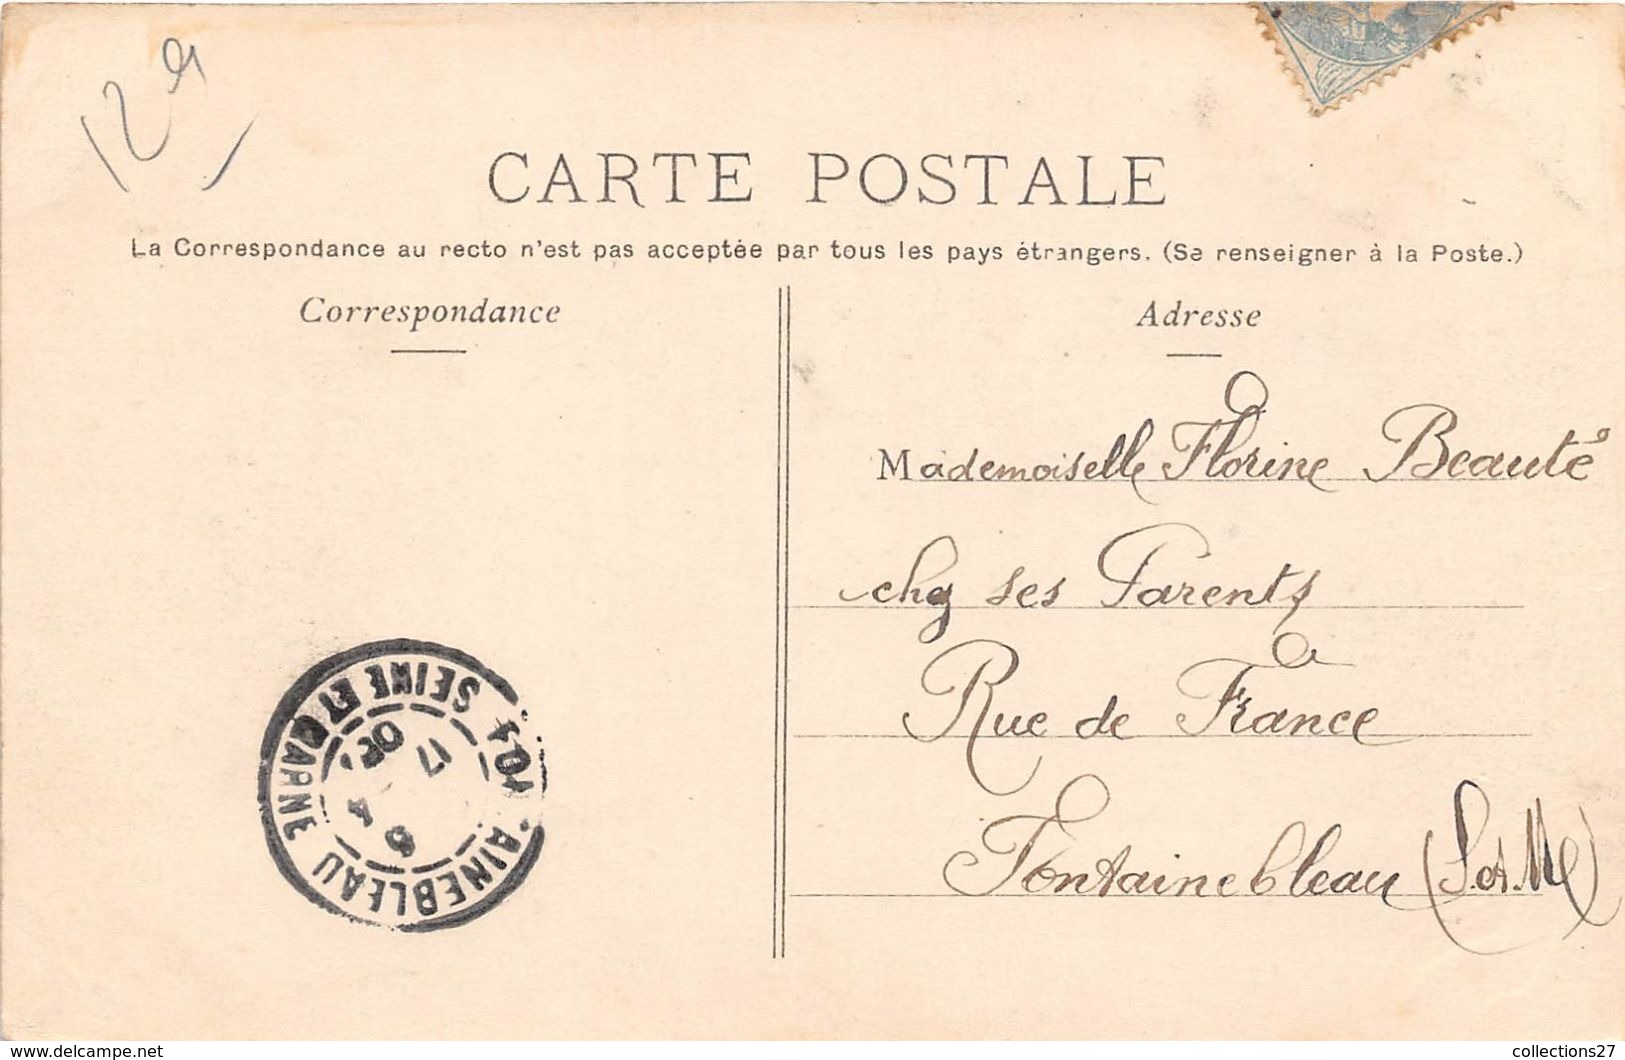 129
CARTE POSTALE
La Correspondance au recto n'est pas acceptée par tous les pays étrangers. (Se renseigner à la Poste.)
Correspondance
Adresse
Mademoiselle Florine Beauté
chez ses Parents
Rue de France
Fontainebleau (S.et.M)
FONTAINEBLEAU
SEINE ET MARNE
17
collections27